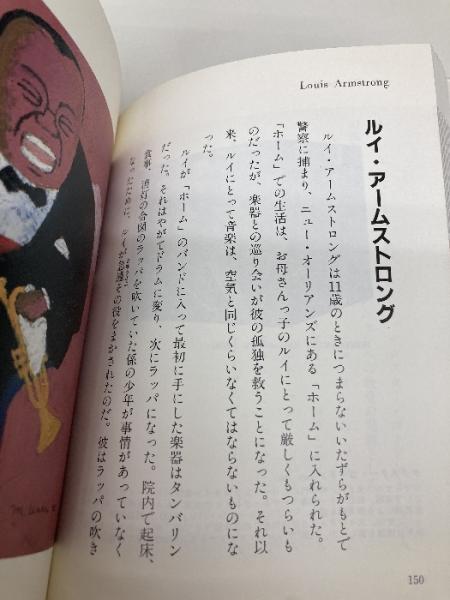 Louis Armstrong
ルイ・アームストロング
ルイ・アームストロングは11歳のときにつまらないいたずらがもとで
警察に捕まり、ニュー・オーリアンズにある「ホーム」に入れられた。
「ホーム」での生活は、お母さんっ子のルイにとって厳しくもつらいも
のだったが、楽器との巡り会いが彼の孤独を救うことになった。それ以
来、ルイにとって音楽は、空気と同じくらいなくてはならないものにな
った。
ルイが「ホーム」のバンドに入って最初に手にした楽器はタンバリン
だった。それはやがてドラムに変り、次にラッパになった。院内で起床、
食事、消灯の合図のラッパを吹いていた係の少年が事情があっていなく
なったために、ルイが急遽その役をまかされたのだ。彼はラッパの吹き
150